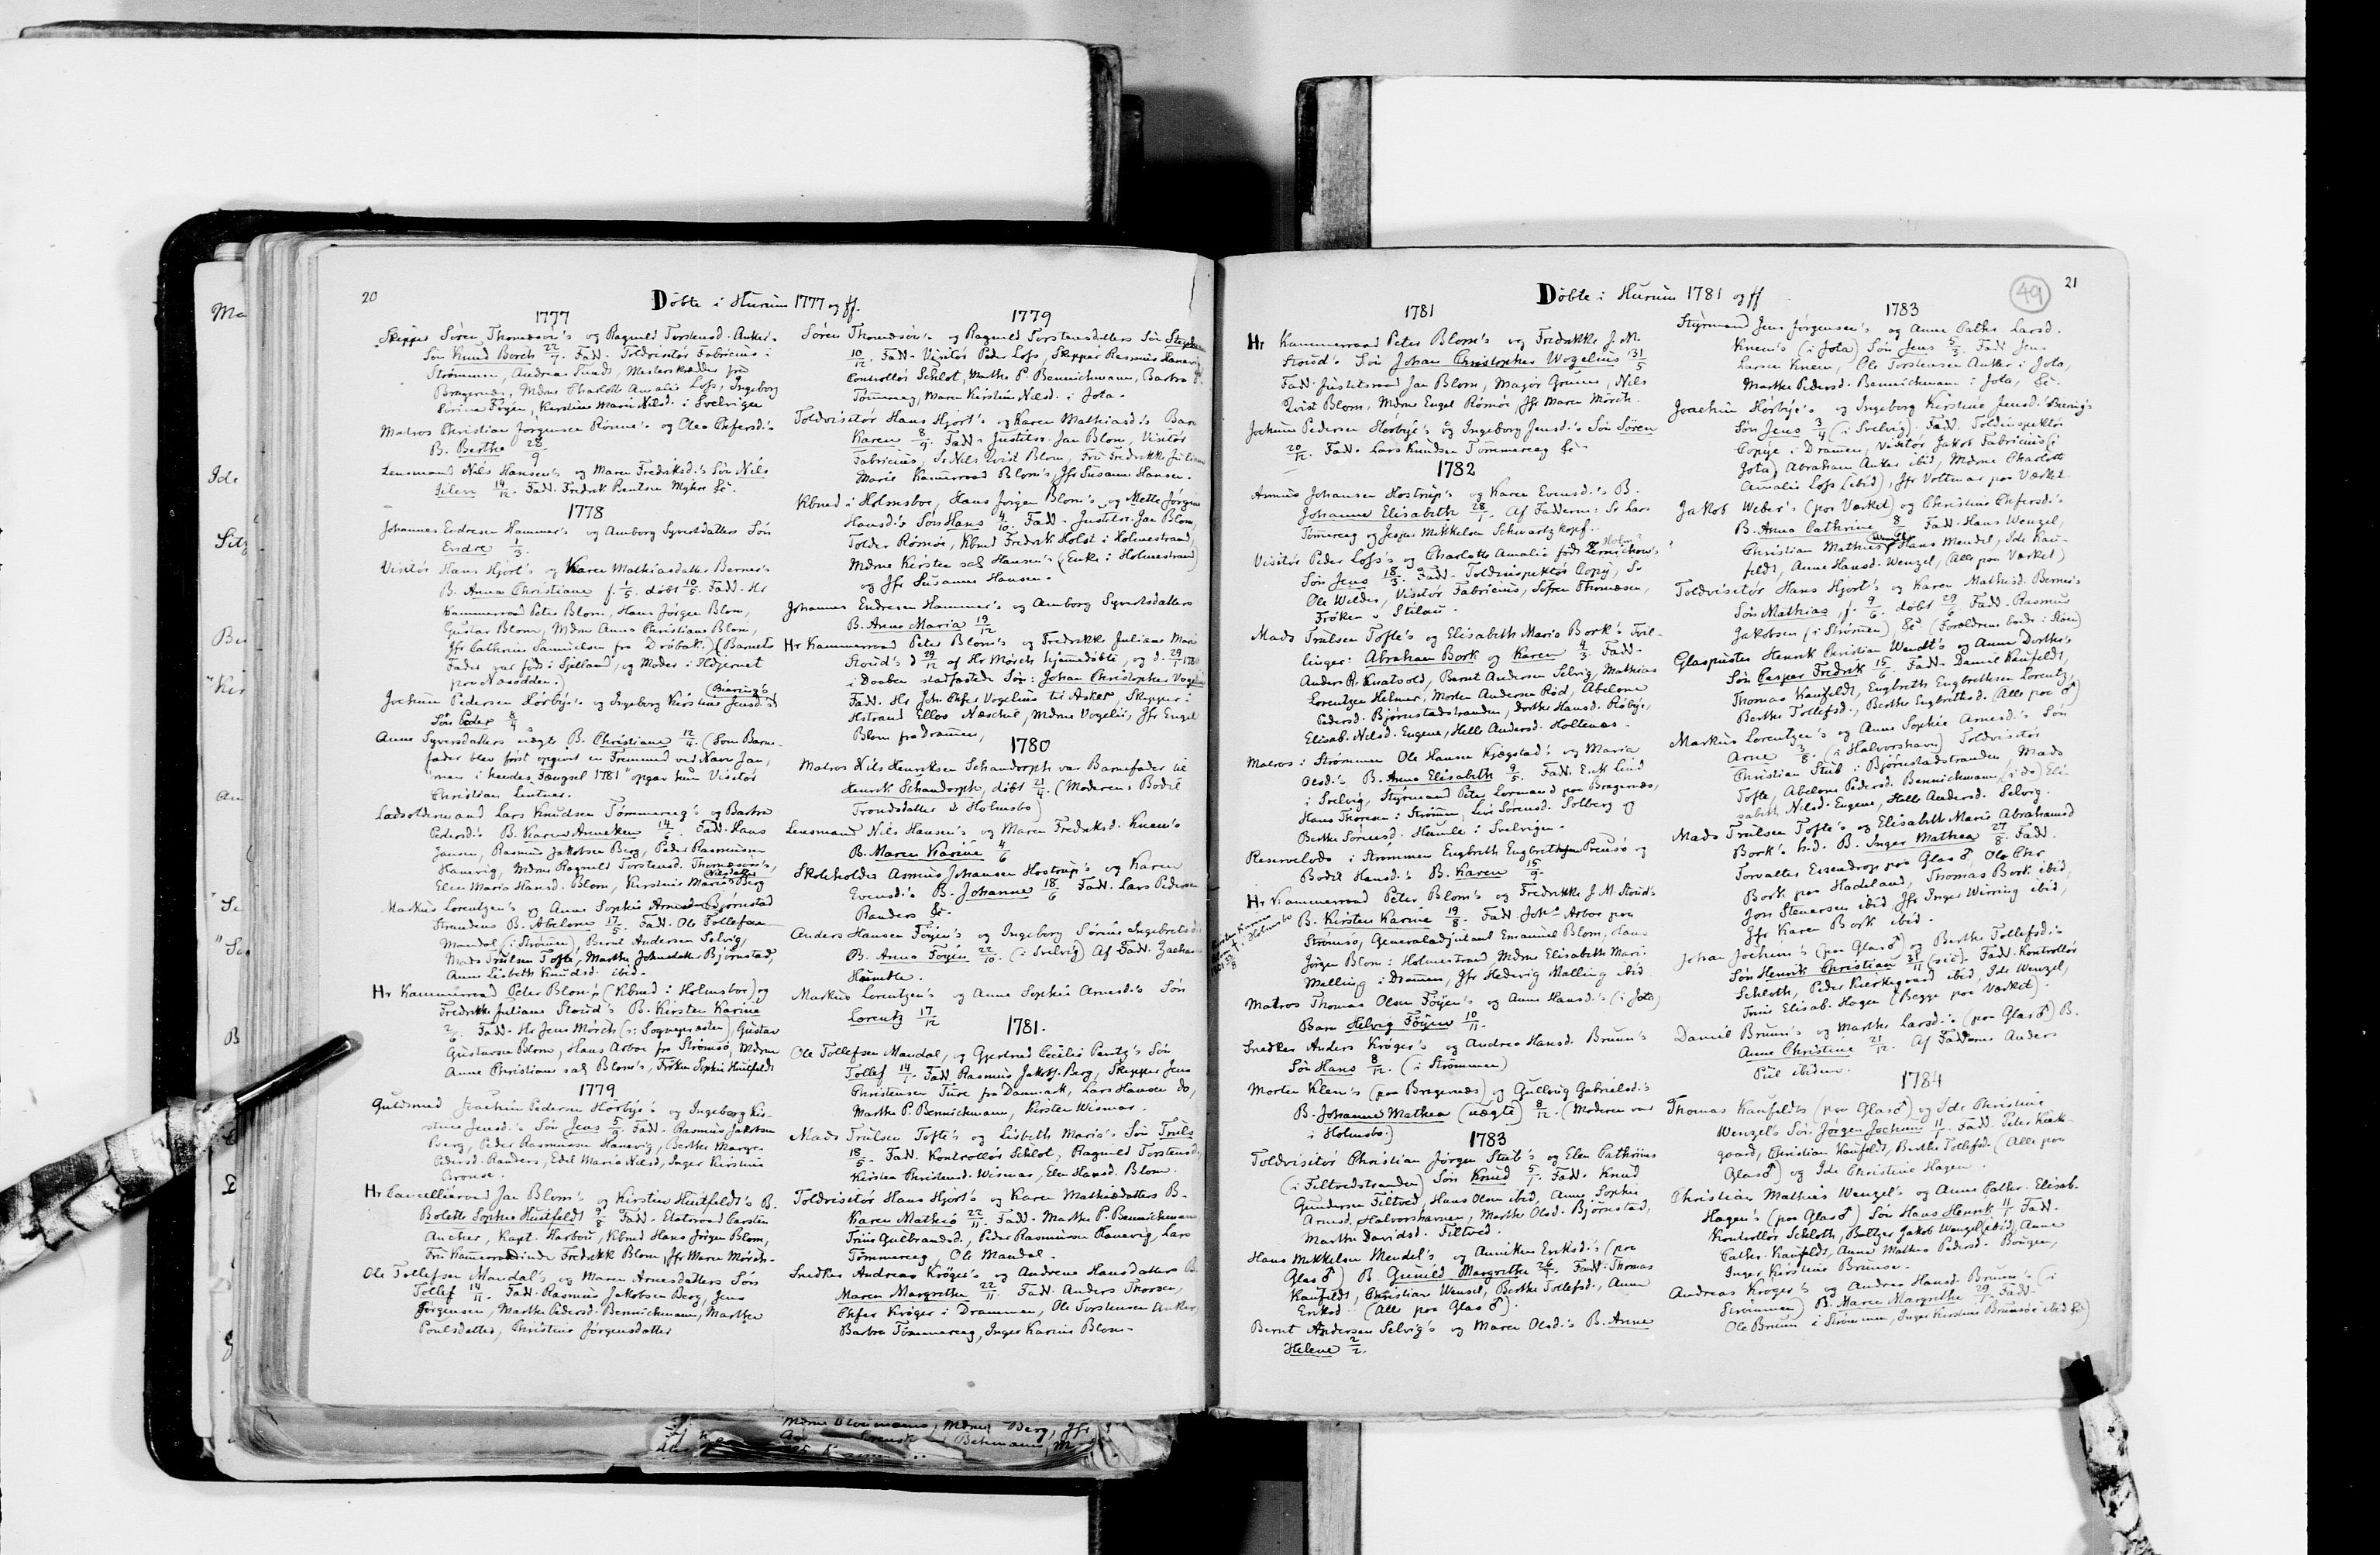 20
Døbte i Hurum 1777 og ff.
1777
Skipper Sören Thomæsön's og Ragnild Torstensd. Anker's
Sön Knud Borch 22/7. Fadd. Toldvisitör Fabricius i
Strömmen, Andreas Tundt, Mesterskræder fra
Bragernæs, Mdme Charlotte Amalie Lofs, Ingeborg
Sörine Föyen, Kirstine Marie Nilsd. i Svelvigen
Matros Christian Jorgensen Rönne's og Olea Chfersd.'s
B. Berthe 28/9
Lensmand Nils Hansen's og Maren Fredriksd.'s Sön Nils
14/12. Fadd. Fredrik Bentsen Myhre &c.
1778
Johannes Endresen Hammer's og Amborg Syvertsdatters Sön
Endre 1/3.
Visitör Hans Hjort's og Karen Mathiasdatter Berner's
B. Anna Christiane f. 1/5. döbt 10/5. Fadd. Hr
Kammerraad Peter Blom, Hans Jörgen Blom,
Gustav Blom, Mdme Anna Christiane Blom,
Jfr Cathrine Samuelsen fra Dröbak.) (Barnets
Fader var född i Sjelland, og Moder i
paa Næsodden.)
Jochum Pedersen Hörbye's og Ingeborg Kirstine Jensd.'s (Biering's)
Sön Peder 8/4
Anne Syversdatters uægte B. Christiane 12/4. (Som Barne-
fader blev först opgivet en Fremmed ved Navn Jan,
men i hendes Fængsel 1781" opgav hun Visitör
Christian Lintner.
Ladsoldermand Lars Knudsen Tömmeraag's og Barbra
Pedersd.'s B. Karen Anneken 14/5. Fadd. Hans
Jansen, Rasmus Jakobsen Berg, Peder Rasmussen
Hanevig, Mdme Ragnild Torstensd. Thomæsön's,
Elen Maria Hansd. Blom, Kirstine Marie Nilsdatter Berg
Markus Lorentzen's og Anne Sophie Arnesd. Bjornstad
Strandens B. Abelone 17/5. Fadd. Ole Tollefsen
Mandal (i Strömmen), Bernt Andersen Selvig,
Mads Trulsen Tofte, Marthe Johnsdatter Björnstad,
Anne Lisbeth Knudsd. ibid.
Hr Kammerraad Peter Blom's (Kbmd i Holmsboe) og
Fredrikke Juliane Stoud's B. Kirsten Karine
2/6. Fadd. Hr Jens Mörch (: Sognepræsten) Gustav
Gustavsen Blom, Hans Arboe fra Strömsö, Mdme
Anne Christiane sal. Blom's, Fröken Sophie Huitfeldt
1779
Guldsmed Joachim Pedersen Hörbye's og Ingeborg Kir-
stine Jensd.'s Sön Jens 5/9. Fadd. Rasmus Jakobsen
Berg, Peder Rasmussen Hanevig, Berthe Margr.
Pedersd. Randers, Edel Maria Nilsd, Inger Kirstine
Bronse.
Hr Cancelliraad Jan Blom's og Kirstine Huitfeldt's B.
Bolette Sophie Huitfeldt 9/8. Fadd. Etatsraad Carsten
Ancher, Kapt. Harboe, Kbmd Hans Jörgen Blom,
Fru Kammerraadinde Fredrikke Blom, Jfr Maren Mörch.
Ole Tollefsen Mandal's og Maren Arnesdatters Sön
Tollef 14/11. Fadd. Rasmus Jakobsen Berg, Jens
Jörgensen, Marthe Pedersd. Bennichmann, Marthe
Poulsdatter, Christine Jörgensdatter
1779
Sören Thomæsön's og Ragnild Torstensdatters Sön
10/12. Fadd. Visitör Peder Lofs, Skipper Rasmus Hanevig,
Controllör Schlot, Marthe P. Bennichmann, Barbra P.
Tömmeraag, Maren Kirstine Nilsd. i Jota.
Toldvisitör Hans Hjort's og Karen Mathiasd.'s Barn
Karen 8/9. Fadd. Justitsr. Jan Blom, Visitör
Fabricius, Sr Nils Qvist Blom, Fru Fredrikke Juliane
Marie Kammerraad Blom's, Jfr Susanne Hansen.
Kbmd i Holmsboe, Hans Jörgen Blom's og Mette Jörgine
Hansd.'s Sön Hans 4/10. Fadd. Justitsr. Jan Blom,
Tolder Römöe, Kbmd Fredrik Holst i Holmestrand,
Mdme Kirsten sal. Hansen's (Enke i Holmestrand)
og Jfr Susanne Hansen.
Johannes Endresen Hammer's og Amborg Syvertsdatters
B. Anne Maria 19/12
Hr Kammerraad Peter Blom's og Fredrikke Juliane Marie
Stoud's d. 29/12 af Hr Mörch hjemmedöbte, og d. 29/1 1780
i Daaben stadfæstede Sön: Johan Christopher
Fadd. Hr Joh. Chfer Vogelius til Asker, Skipper i
Hstrand Ellos Næschel, Mdme Vogelii, Jfr Engel
Blom fra Drammen,
1780
Matros Nils Henriksen Schandorph var Barnefader til
Henrik Schandorph, döbt 21/4. (Moderen: Bodil
Trondsdatter i Holmsbo)
Lensmand Nils Hansen's og Maren Fredriksd. Knem's
B. Maren Karine 4/6
Skoleholder Asmus Johansen Hostrup's og Karen
Evensd.'s B. Johanne 18/6. Fadd. Lars Pedersen
Randers &c.
Anders Hansen Föyen's og Ingeborg Sörine Ingebretsd.'s
B. Anna Föyen 22/10. (i Svelvig) Af Fadd. Zacharias
Hamble.
Markus Lorentzen's og Anne Sophie Arnesd.'s Sön
Lorentz 17/12
1781.
Ole Tollefsen Mandal, og Gjertrud Cecilie Pentz's Sön
Tollef 14/1. Fadd. Rasmus Jakobs. Berg, Skipper Jens
Christensen Ture fra Danmark, Lars Hansen do,
Marthe P. Bennichmann, Kirsten Wismar.
Mads Trulsen Tofte's og Lisbeth Maria's Sön Truls
18/5. Fadd. Kontrollör Schlot, Ragnild Torstensd,
Kirsten Christensd. Wismar, Elen Hansd. Blom.
Toldvisitör Hans Hjort's og Karen Mathiasdatters B.
Karen Mathea 22/11. Fadd. Marthe P. Bennichmann,
Trine Gulbrandsd., Peder Rasmussen Hanevig, Lars
Tömmeraag, Ole Mandal.
Snedker Andreas Kröger's og Andrene Hansdatters B.
Maren Margrethe 22/11. Fadd. Anders Thorsen,
Chfer Kröger i Drammen, Ole Torstensen Anker,
Barbra Tömmeraag, Inger Karine Blom.
21
49
Døbte i Hurum 1781 og ff
1781
Hr Kammerraad Peter Blom's og Fredrikke J. M.
Stoud's Sön Johan Christopher Wogelius 31/5
Fadd. Justitsraad Jan Blom, Major Gruner, Nils
Qvist Blom, Mdme Engel Römöe, Jfr Maren Mörch.
Jochum Pedersen Hörbye's og Ingeborg Jensd.'s Sön Sören
20/12. Fadd. Lars Knudsen Tömmeraag &c.
1782
Asmus Johansen Hostrup's og Karen Evensd.'s B.
Johanne Elisabeth 28/1. Af Fadderne: Sr Lars
Tömmeraag og Jesper Mikkelsen Schwartzkopf.
Visitör Peder Lofs's og Charlotte Amalie födt
Sön Jens 18/3. Fadd. Toldinspektör Copij, Sr
Ole Wilder, Visitör Fabricius, Söfren Thomæsen,
Fröken v. Stilau.
Mads Trulsen Tofte's og Elisabeth Maria Bork's Tvil-
linger: Abraham Bork og Karen 4/3. Fadd.
Anders R. Knatvold, Bernt Andersen Selvig, Mathias
Lorentzen Helmer, Morten Andersen Röd, Abelone
Pedersd. Björnstadstranden, Dorthe Hansd. Röbye,
Elisab. Nilsd. Eugene, Helle Andersd. Holtenæs.
Matros i Strömmen Ole Hansen Kjegstad's og Maria
Olsd.'s B. Anne Elisabeth 9/5. Fadd. Erik Lind
i Svelvig, Styrmand Peter Lormand paa Bragernæs,
Hans Thoresen i Strömm., Liv Sörensd. Solberg og
Berthe Sörensd. Hamle i Svelvigen.
Reservelods i Strömmen Engbreth Engbrethsen Preusö og
Bodil Hansd.'s B. Karen 15/9.
Hr Kammerraad Peter Blom's og Fredrikke J. M. Stoud's
B. Kirsten Karine 19/8. Fadd. Joh. Arboe paa
Strömsö, Generaladjutant Emanuel Blom, Hans
Jörgen Blom i Holmestrand, Mdme Elisabeth Marie
Malling i Drammen, Jfr Hedevig Malling ibid
Kirsten Karine
Matros Thomas Olsen Föyen's og Anne Hansd.'s (i Jota)
Barn Helvig Föyen 10/11.
Snedker Anders Kröger's og Andrea Hansd. Bruun's
Sön Hans 8/12. (i Strömmen)
Morten Klem's (paa Bragernæs) og Gullovig Gabrielsd.'s
B. Johanne Mathea (uægte) 8/12. (Moderen var
i Holmsbo.)
1783
Toldvisitör Christian Jörgen Stub's og Elen Cathrines
(i Filtvedstranden) Sön Knud 5/1. Fadd. Knud
Gundersen Filtved, Hans Olsen ibid, Anne Sophie
Arnesd. Halvorshavnen, Marthe Olsd. Björnstad,
Marthe Davidsd. Filtved.
Hans Mikkelsen Mendel's og Anniken Eriksd.'s (paa
Glas♂) B. Gunild Margrethe 26/1. Fadd. Thomas
Kaufeldt, Christian Wensel, Berthe Tollefsd., Anne
Eriksd. (Alle paa Glas♂).
Bernt Andersen Selvig's og Maren Olsd.'s B. Anne
Helene 2/2.
1783
Styrmand Jens Jörgensen's og Anne Cathr. Larsd.
Knem's (i Jota) Sön Jens 5/3. Fadd. Jens
Larsen Knem, Ole Torstensen Anker i Jota,
Marthe Pedersd. Bennichmann i Jota, &c.
Joachim Hörbye's og Ingeborg Kirstine Jensd. Biering's
Sön Jens 3/4 (i Svelvig). Fadd. Toldinspektör
Copije i Drammen, Visitör Jakob Fabricius (i
Jota) Abraham Anker ibid, Mdme Charlotte
Amalie Lofs (ibid), Jfr Voltmar paa Værket.
Jakob Weber's (paa Værket) og Christine Chfersd.'s
B. Anna Cathrine 8/6. Fadd. Hans Wenzel,
Christian Mathias Wenzel, Hans Mendel, Ide Kau-
feldt, Anne Hansd. Wenzel, (Alle paa Værket)
Toldvisitör Hans Hjort's og Karen Mathisd. Berner's
Sön Mathias, f. 9/6. döbt 29/6. Fadd. Rasmus
Jakobsen (i Strömmen) &c. (Forældrene boede i Stöen)
Glaspuster Henrik Christian Wendt's og Anne Dorthe's
Sön Casper Fredrik 15/6. Fadd. Daniel Kaufeldt,
Thomas Kaufeldt, Engbreth Engbrethsen Lorentz,
Berthe Tollefsd., Berthe Engbrethsd. (Alle paa ♂)
Markus Lorentzen's og Anne Sophie Arnesd.'s Sön
Arne 3/8. (i Halvorshavn) Toldvisitör
Christian Stub i Björnstadstranden, Mads
Tofte, Abelone Pedersd. Bennichmann (i do) Eli-
sabeth Nilsd. Eugene, Helle Andersd. Selvig.
Mads Trulsen Tofte's og Elisabeth Maria Abrahamsd
Bork's h.d. B. Inger Mathea 27/8. Fadd.
Forvalter Essendrop paa Glas♂ Ole Chr.
Bork paa Hadeland, Thomas Bork ibid,
Jon Stenersen ibid Jfr Inger Wirring ibid,
Jfr Karen Bork ibid.
Johan Jochim's (paa Glas♂) og Berthe Tollefsd.'s
Sön Henrik Christian 31/11 (sic). Fadd. Kontrollör
Schloth, Peder Kierkegaard ibid, Ide Wenzel,
Trine Elisab. Hagen (Begge paa Værket).
Daniel Bruun's og Marthe Larsd.'s (paa Glas♂) B.
Anne Christine 21/12. Af Fadderne Anders
Piil ibidem.
1784
Thomas Kaufeldts (paa Glas♂) og Ide Christine
Wenzel's Sön Jörgen Jochum 11/1. Fadd. Peter Kirke-
gaard, Christian Kaufeldt, Berthe Tollefsd. (Alle paa
Glas♂) og Ide Christine Hagen.
Christian Mathias Wenzel's og Anne Cathr. Elisab.
Hagen's (paa Glas♂) Sön Hans Henrik 11/1. Fadd.
Kontrollör Schloth, Baltzer Jakob Wenzel (ibid), Anne
Cathr. Kaufeldt, Anne Mathea Pedersd. Bougen,
Inger Kirstine Brunse.
Andreas Kroger's og Andrea Hansd. Bruun's (i
Strömmen) B. Maren Margrethe 29/1. Fadd.
Ole Bruun i Strömmen, Inger Kirstine Brunsöe ibid &c)